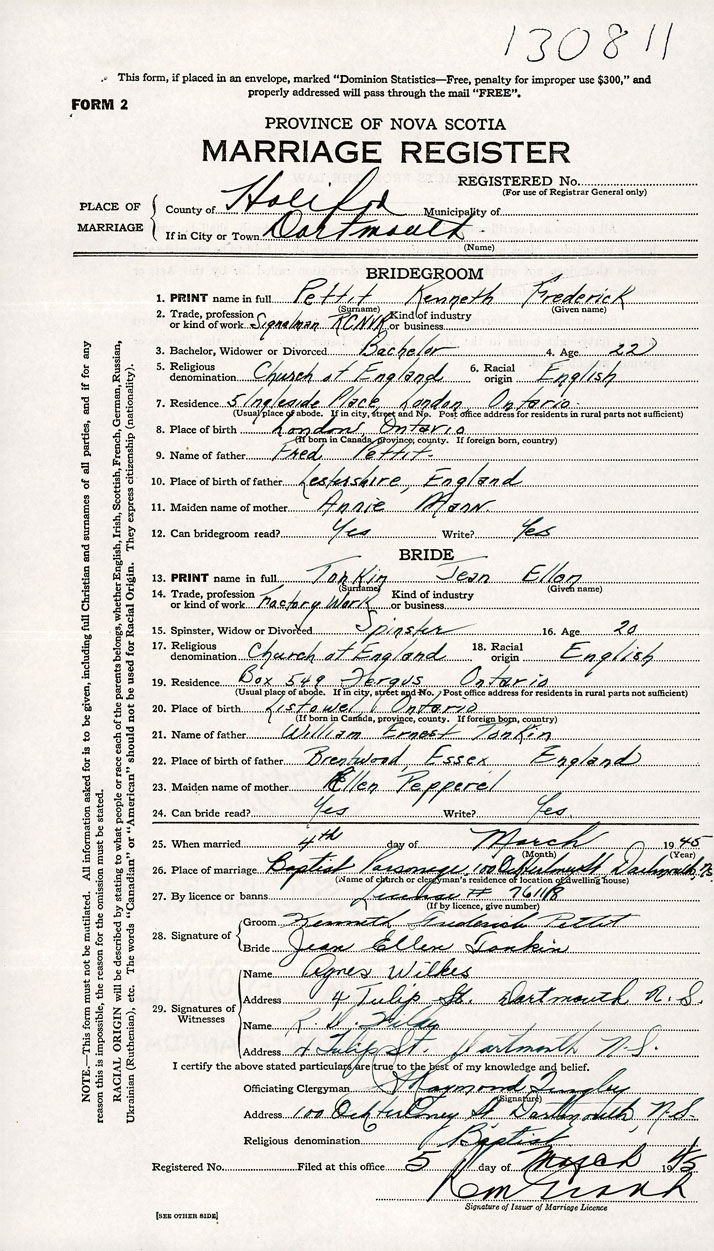 130811
This form, if placed in an envelope, marked "Dominion Statistics—Free, penalty for improper use $300," and
properly addressed will pass through the mail "FREE".
FORM 2
PROVINCE OF NOVA SCOTIA
MARRIAGE REGISTER
REGISTERED No.
(For use of Registrar General only)
PLACE OF MARRIAGE
County of Halifax Municipality of
If in City or Town Dartmouth
(Name)
BRIDEGROOM
1. PRINT name in full Pettit Kenneth Frederick
(Surname) (Given name)
2. Trade, profession or kind of work Signalman RCNVR Kind of industry or business
3. Bachelor, Widower or Divorced Bachelor 4. Age 22
5. Religious denomination Church of England 6. Racial origin English
7. Residence 5 Ingleside Place London Ontario
(Usual place of abode. If in city, street and No. Post office address for residents in rural parts not sufficient)
8. Place of birth London, Ontario
(If born in Canada, province, county. If foreign born, country)
9. Name of father Fred Pettit
10. Place of birth of father Lestershire, England
11. Maiden name of mother Annie Mann
12. Can bridegroom read? Yes Write? Yes
BRIDE
13. PRINT name in full Tonkin Jean Ellen
(Surname) (Given name)
14. Trade, profession or kind of work Factory Work Kind of industry or business
15. Spinster, Widow or Divorced Spinster 16. Age 20
17. Religious denomination Church of England 18. Racial origin English
19. Residence Box 549 Fergus Ontario
(Usual place of abode. If in city, street and No. Post office address for residents in rural parts not sufficient)
20. Place of birth Listowel, Ontario
(If born in Canada, province, county. If foreign born, country)
21. Name of father William Ernest Tonkin
22. Place of birth of father Brentwood, Essex England
23. Maiden name of mother Ellen Pepperel
24. Can bride read? Yes Write? Yes.
25. When married 4th day of March 1945
(Month) (Year)
26. Place of marriage Baptist Parsonage, 100 St Dartmouth, N.S.
(Name of church or clergyman's residence or location of dwelling house)
27. By licence or banns License # 76118
(If by licence, give number)
28. Signature of
Groom Kenneth Frederick Pettit
Bride Jean Ellen Tonkin
29. Signatures of Witnesses
Name Agnes Wilkes
Address 4 Tulip St. Dartmouth N.S.
Name
Address 4 Tulip St. Dartmouth N.S.
I certify the above stated particulars are true to the best of my knowledge and belief.
Officiating Clergyman Raymond
(Signature)
Address 100 St Dartmouth, N.S.
Religious denomination Baptist
Registered No. Filed at this office 5 day of March 1945
Signature of Issuer of Marriage Licence
[SEE OTHER SIDE]
NOTE.—This form must not be mutilated. All information asked for is to be given, including full Christian and surnames of all parties, and if for any
reason this is impossible, the reason for the omission must be stated.
RACIAL ORIGIN will be described by stating to what people or race each of the parents belongs, whether English, Irish, Scottish, French, German, Russian,
Ukrainian (Ruthenian), etc. The words "Canadian" or "American" should not be used for Racial Origin. They express citizenship (nationality).